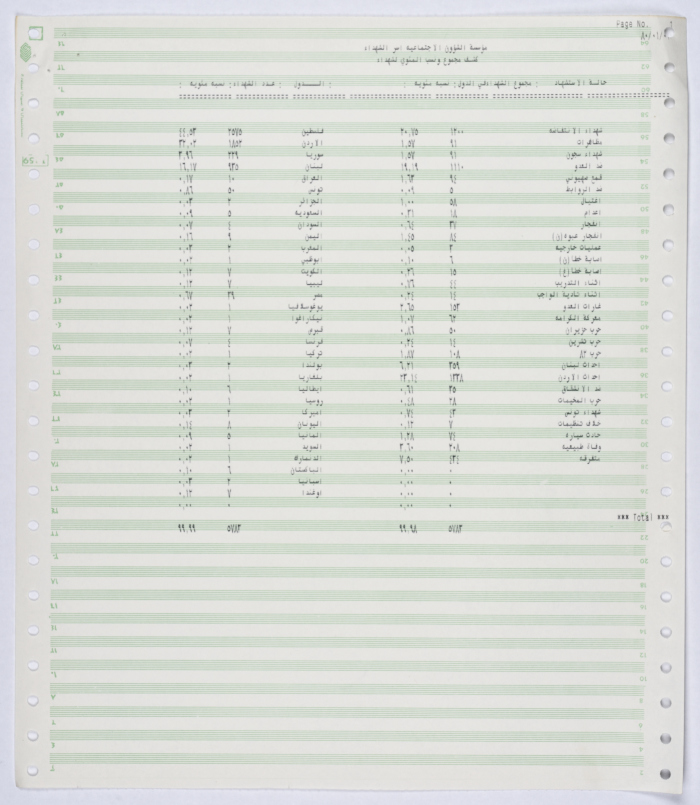 Page No. 1
مؤسسة الشؤون الاجتماعيه اسر الشهداء
كشف مجموع ونسب المئوي للشهداء
حالة الاستشهاد : مجموع الشهداء في الدول : نسبه مئويه : الــدول : عدد الشهداء : نسبه مئويه :
شهداء الانتفاضه ١٢٠٠ ٢٠,٧٥ فلسطين ٢٥٧٥ ٤٤,٥٣
مظاهرات ٩١ ١,٥٧ الاردن ١٨٥٢ ٣٢,٠٢
شهداء سجون ٩١ ١,٥٧ سوريا ٢٢٩ ٣,٩٦
ضد العدو ١١١٠ ١٩,١٩ لبنان ٩٣٥ ١٦,١٧
قمع صهيوني ٩٤ ١,٦٣ العراق ١٠ ٠,١٧
ضد الروابط ٥ ٠,٠٩ تونس ٥٠ ٠,٨٦
اغتيال ٥٨ ١,٠٠ الجزائر ٢ ٠,٠٣
اعدام ١٨ ٠,٣١ السعوديه ٥ ٠,٠٩
انفجار ٣٧ ٠,٦٤ السودان ٤ ٠,٠٧
انفجار عبوه(ن) ٨٤ ١,٤٥ اليمن ٩ ٠,١٦
عمليات خارجيه ٣ ٠,٠٥ المغرب ٢ ٠,٠٣
اصابة خطا(ن) ٦ ٠,١٠ ابوظبي ١ ٠,٠٢
اصابة خطا(ع) ١٥ ٠,٢٦ الكويت ٧ ٠,١٢
اثناء التدريب ٤٤ ٠,٧٦ ليبيا ٧ ٠,١٢
اثناء تادية الواجب ١٤ ٠,٢٤ مصر ٣٩ ٠,٦٧
غارات العدو ١٥٣ ٢,٦٥ يوغوسلافيا ١ ٠,٠٢
معركة الكرامه ٦٢ ١,٠٧ نيكاراغوا ١ ٠,٠٢
حرب حزيران ٥٠ ٠,٨٦ قبرص ٧ ٠,١٢
حرب تشرين ١٤ ٠,٢٤ فرنسا ٤ ٠,٠٧
حرب ٨٢ ١٠٨ ١,٨٧ تركيا ١ ٠,٠٢
احداث لبنان ٣٥٩ ٦,٢١ بولندا ٢ ٠,٠٣
احداث الاردن ١٣٣٨ ٢٣,١٤ بلغاريا ١ ٠,٠٢
ضد الانشقاق ٣٥ ٠,٦١ ايطاليا ٦ ٠,١٠
حرب المخيمات ٢٨ ٠,٤٨ روسيا ١ ٠,٠٢
شهداء تونس ٤٣ ٠,٧٤ اميركا ٢ ٠,٠٣
خلاف تنظيمات ٧ ٠,١٢ اليونان ٨ ٠,١٤
حادث سياره ٧٤ ١,٢٨ المانيا ٥ ٠,٠٩
وفاة طبيعيه ٢٠٨ ٣,٦٠ السويد ١ ٠,٠٢
متفرقه ٤٣٤ ٧,٥٠ الدنمارك ١ ٠,٠٢
٠ ٠,٠٠ الباكستان ٦ ٠,١٠
٠ ٠,٠٠ اسبانيا ٢ ٠,٠٣
٠ ٠,٠٠ اوغندا ٧ ٠,١٢
٠ ٠,٠٠ ٠ ٠,٠٠
*** Total ***
٥٧٨٣ ٩٩,٩٨ ٥٧٨٣ ٩٩,٩٩